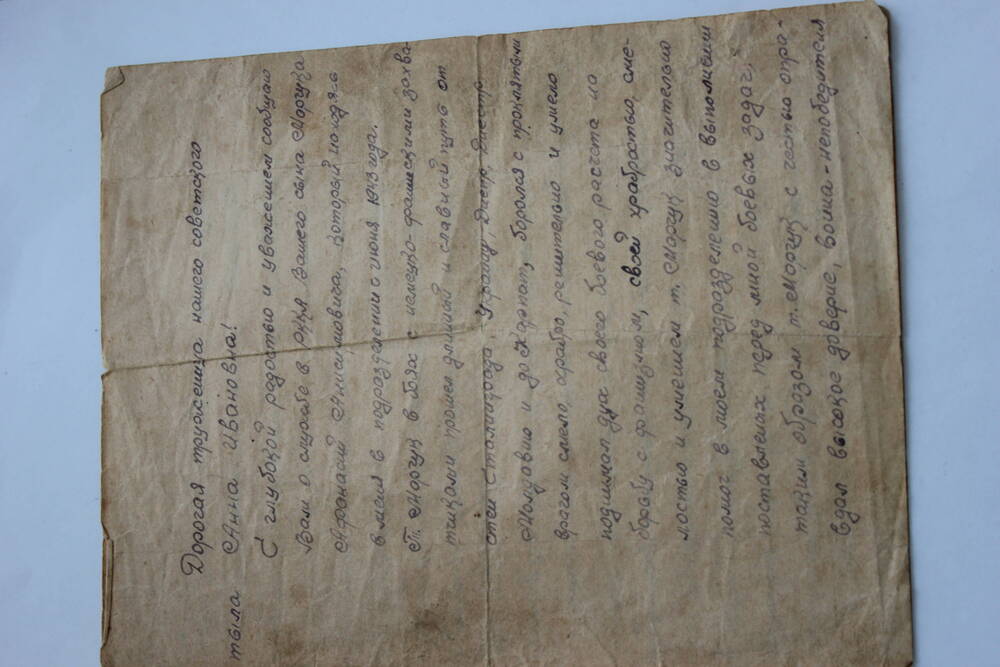 Дорогая труженица нашего советского
тыла Анна Ивановна!
С глубокой радостью и уважением сообщаю
Вам о службе в РККА Вашего сына Моргука
Афанасий Анисимовича, который находясь
в меня в подразделении с июня 1943 года.
Т. Моргук в боях с немецко-фашискими захва-
тчиками прошел длинный и славный путь от
стен Сталинграда, Украину, Днепр, Днестр
Молдавию и до Карпат, боролся с проклятым
врагом смело, храбро, решительно и умело
поднимал дух своего боевого расчета на
борьбу с фашизмом, своей храбростью, сме-
лостью и умением т. Моргук значительно
помог в моем подразделению в выполнении
поставленых перед мной боевых задач,
таким образом т. Моргук с честью опра-
вдал высокое доверие, воина-непобедителя